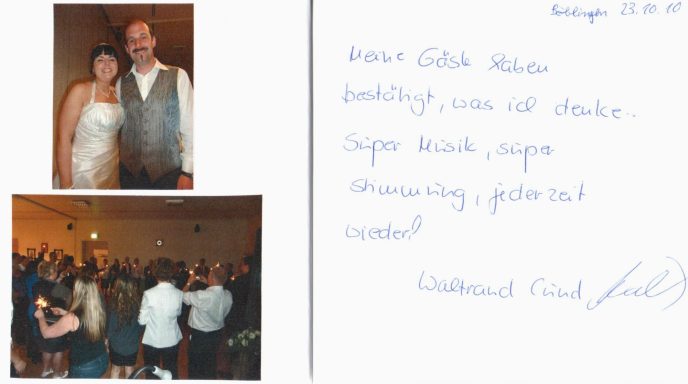 Böblingen 23.10.10
Meine Gäste haben
bestätigt, was ich denke..
Super Musik, super
Stimmung, jederzeit
wieder!
Waltraud